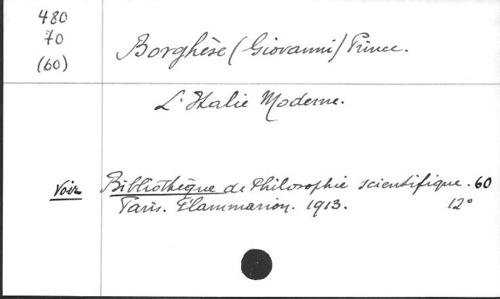 480
70
(60)
Borghèse (Giovanni) Prince.
L'Italie Moderne.
Voir Bibliothèque de Philosophie scientifique. 60
Paris. Flammarion. 1913. 12°